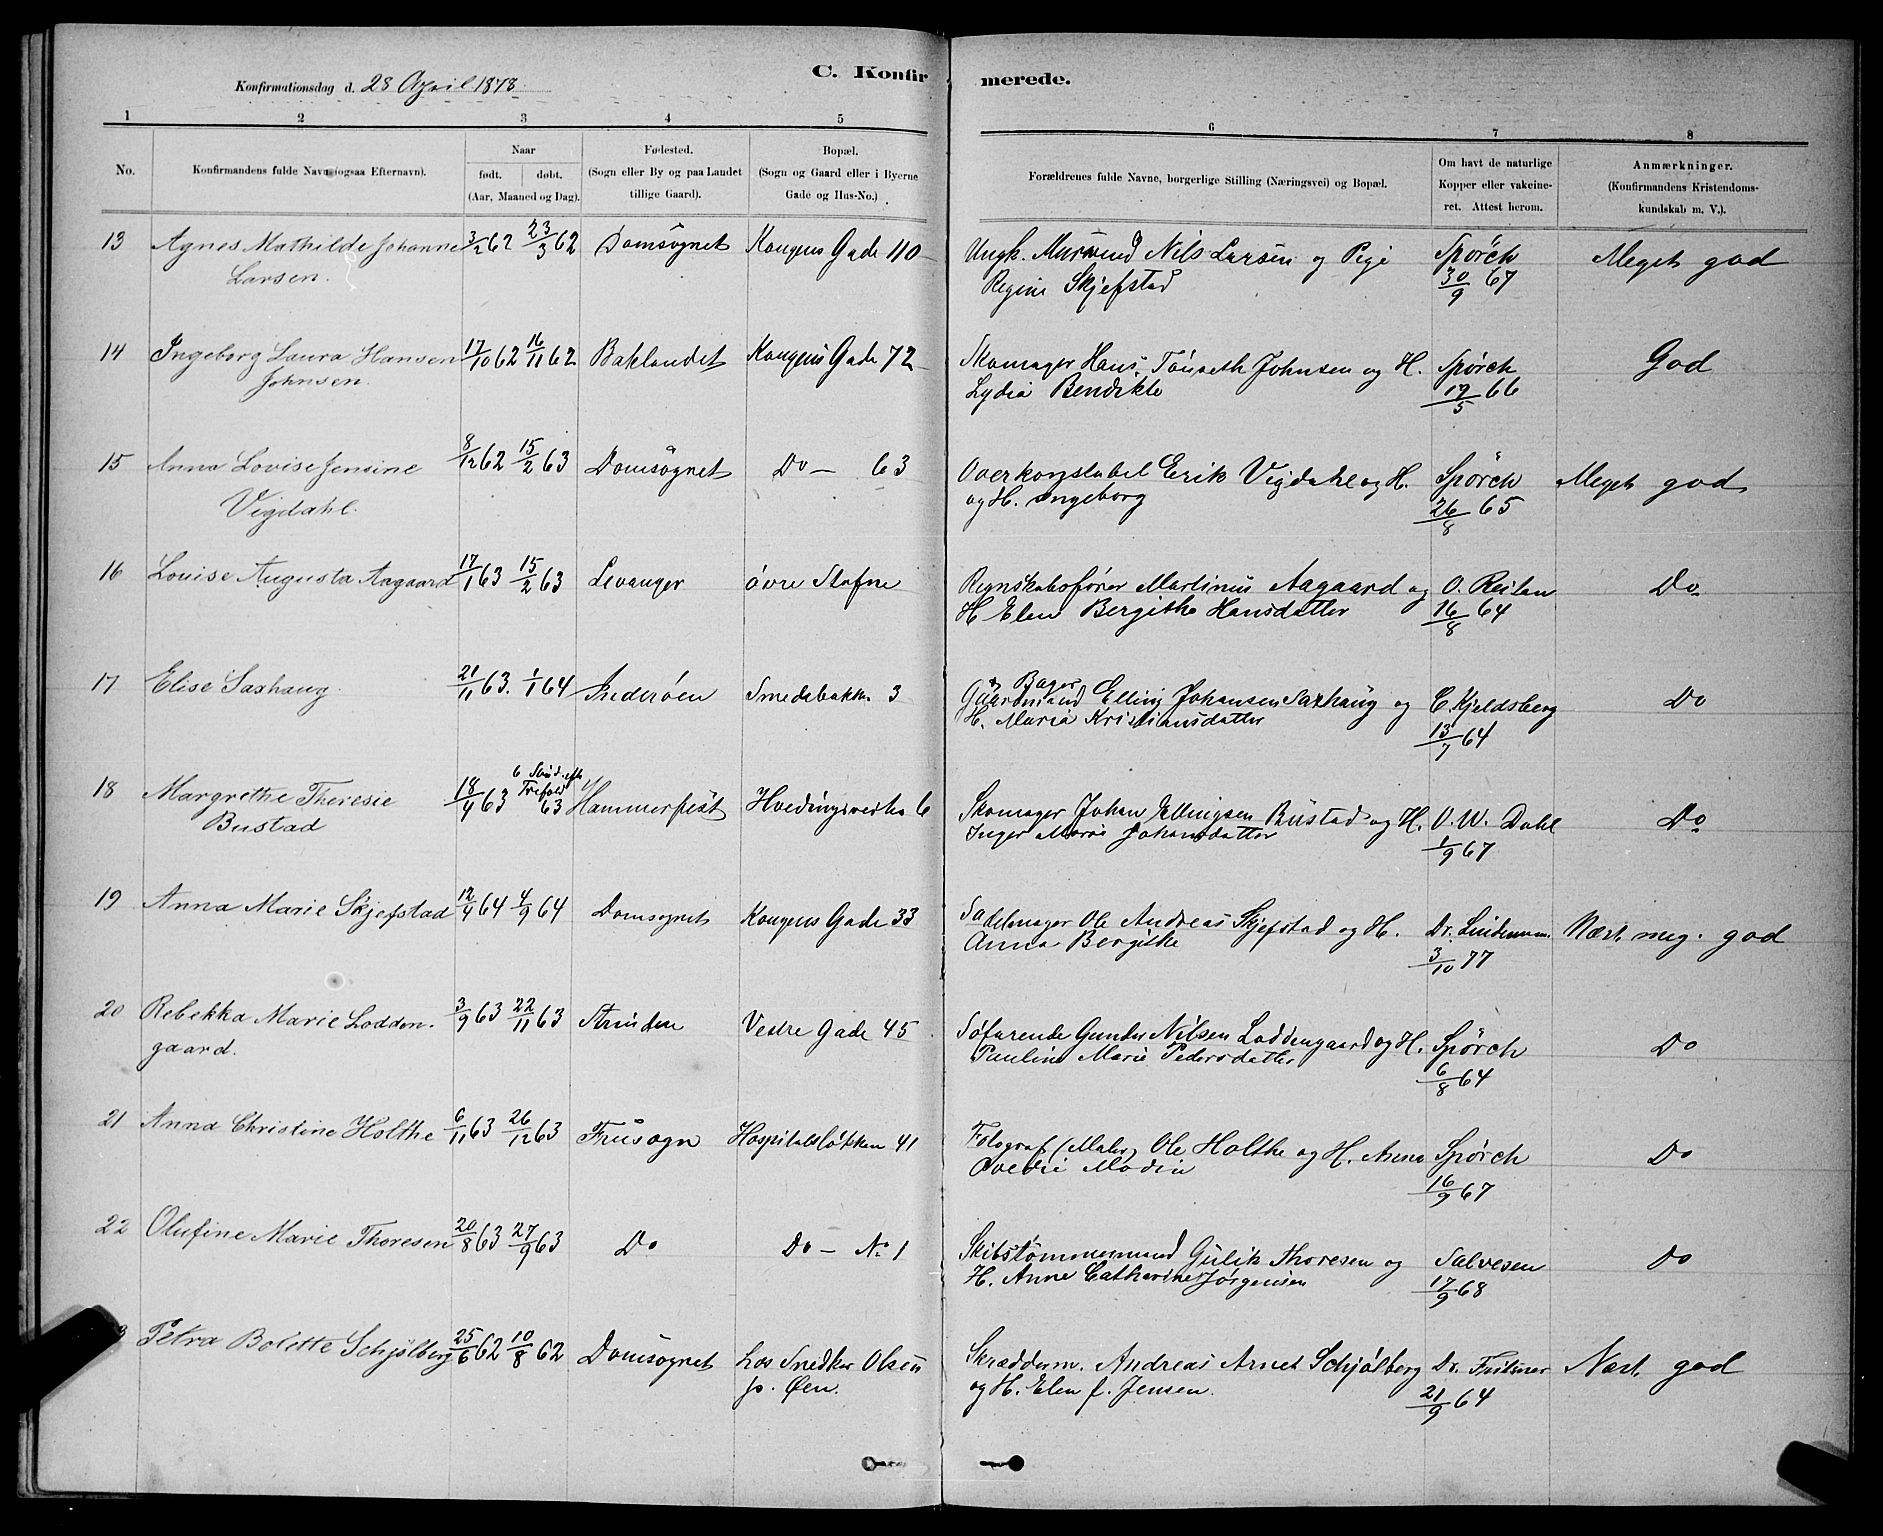 Konfirmationsdag d. 28 April 1878.
C. Konfirmerede.
1 2 3 4 5 6 7 8
No.
Konfirmandens fulde Navn (ogsaa Efternavn).
Naar
født. døbt.
(Aar, Maaned og Dag).
Fødested.
(Sogn eller By og paa Landet
tillige Gaard).
Bopæl.
(Sogn og Gaard eller i Byerne
Gade og Hus-No.)
Forældrenes fulde Navne, borgerlige Stilling (Næringsvei) og Bopæl.
Om havt de naturlige
Kopper eller vakcine-
ret. Attest herom.
Anmærkninger.
(Konfirmandens Kristendoms-
kundskab m. V.).
13 Agnes Mathilde Johanne 3/2 62 23/3 62 Domsognet Kongens Gade 110 Ungk. Nils Larsen og Pige Spörch Meget god
Larsen. Regine Skjefstad 30/9 67
14 Ingeborg Laura Hansen 17/10 62 16/11 62 Baklandet Kongens Gade 72 Skomager Hans Tönseth Johnsen og H. Spørch God
Johnsen. Lydia Bendikte 12/5 66
15 Anna Lovise Jensine 8/12 62 15/2 63 Domsognet Do — 63 Overkonstabel Erik Vigdahl og H. Spørch Meget god
Vigdahl. og H. Ingeborg 26/8 65
16 Louise Augusta Aagaard 17/1 63 15/2 63 Levanger övre Stafne Regnskabsfører Martinus Aagaard og O. Reitan Do
H. Elen Bergithe Hansdatter 16/8 64
17 Elise Saxhaug. 21/11 63. 1/1 64 Inderöen Smedebakken 3 Gaardmand & Bager Elling Johansen Saxhaug og C. Kjeldsberg Do
H. Maria Kristiansdatter 13/7 64
18 Margrethe Theresie 18/4 63 6 Sönd. eft. Trefold. 63 Hammerfest Hvedingsveita 6 Skomager Johan Ellingsen Bustad og H. O. W. Dahl Do
Bustad Inger Maria Johansdatter 1/9 67
19 Anna Marie Skjefstad 12/4 64 4/9 64 Domsognet Kongens Gade 33 Sadelmager Ole Andreas Skjefstad og H. Dr. Lindeman. Næst. meg. god
Anna Bergithe 3/10 77
20 Rebekka Marie Lodden- 3/9 63 22/11 63 Strinden Vestre Gade 45 Söfarende Gunder Nilsen Loddengaard og H. Spörch Do
gaard. Pauline Marie Pedersdatter 6/8 64
21 Anna Christine Holthe 6/11 63 26/12 63 Fruesogn Hospitalsløkken 41 Fotograf (Maler) Ole Holthe og H. Anna Spørch Do
Ovedie Modin 16/9 67
22 Olufine Marie Thoresen 20/8 63 27/9 63 Do Do — No 1 Skibstømmermand Gulik Thoresen og Salvesen Do
H. Anne Catharine Jørgensen 17/9 68
3 Petra Bolette Schjølberg 25/6 62 10/8 62 Domsognet hos Snedker Olsen Skrædderm. Andreas Arnet Schjølberg Dr. Næst. god
p. Øen. og H. Elen f. Jensen. 21/9 64